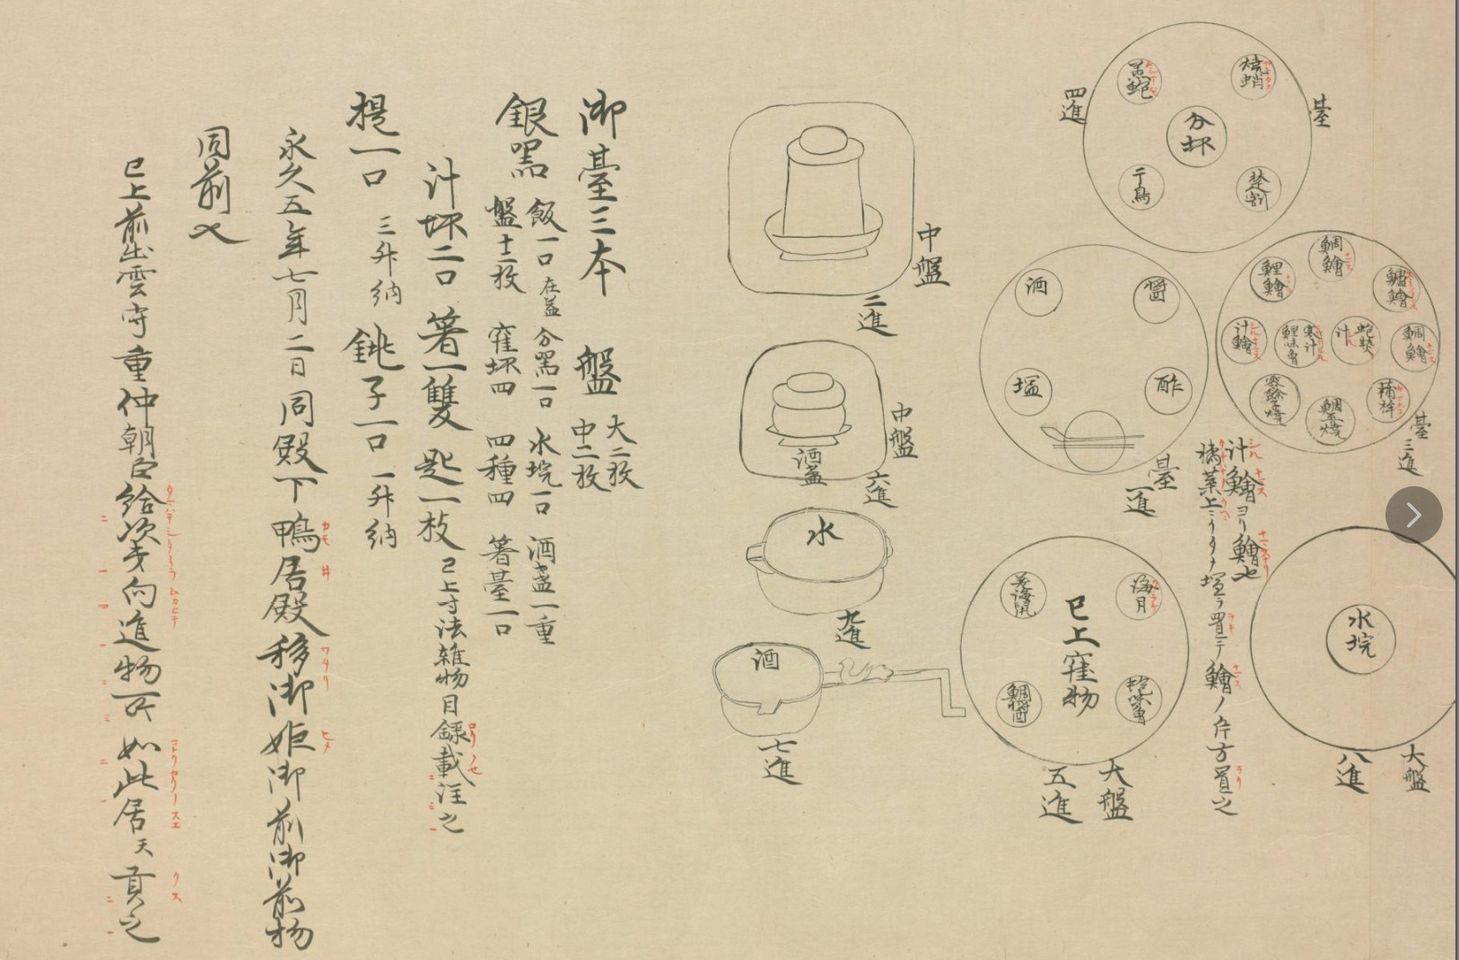 臺
四進
炙蛸
分坏
楚割
干鳥
臺
三進
鯛鱠
鯉鱠
汁鱠
鯛鱠
寒汁
汁
汁鱠ヨリ鱠也
大盤
八進
水垸
臺
一進
醤
酒
酢
塩
大盤
五進
已上窪物
海月
鯛醤
中盤
二進
中盤
六進
酒盞
水
九進
酒
七進
御臺三本 盤 大二枚
中二枚
銀器 飯一口 在盖 分器一口 水垸一口 酒盞一重
盤十二枚 窪坏四 四種四 箸臺一口
汁坏二口 箸一雙 匙一枚 已上寸法雑物目録載注之
提一口 三升納 銚子一口 一升納
永久五年七月二日同殿下鴨居殿移御姫御前御前物
同前也
已上前出雲守重仲朝臣給次才向進物所如此居天貢之